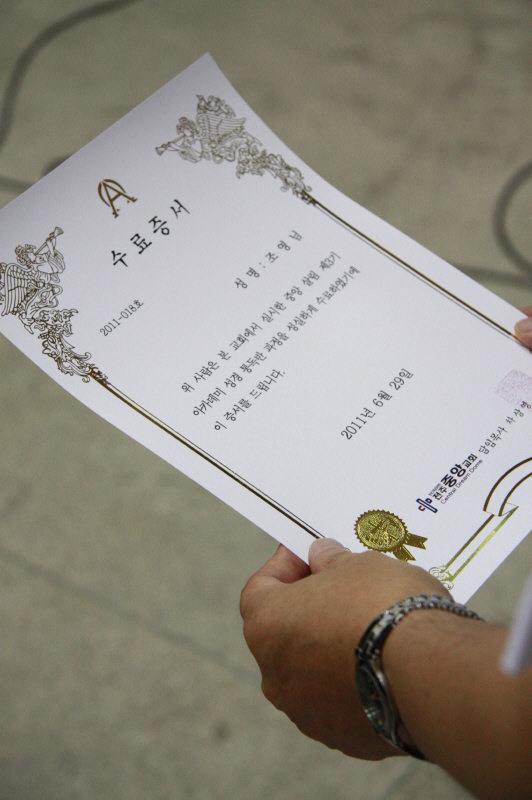 수료증서
2011-018호
성 명 : 조 영 남
위 사람은 본 교회에서 실시한 중앙 살림 제3기
아카데미 성경 통독반 과정을 성실하게 수료하였기에
이 증서를 드립니다.
2011년 6월 29일
전주 중앙교회 담임목사
Central Dream Dome